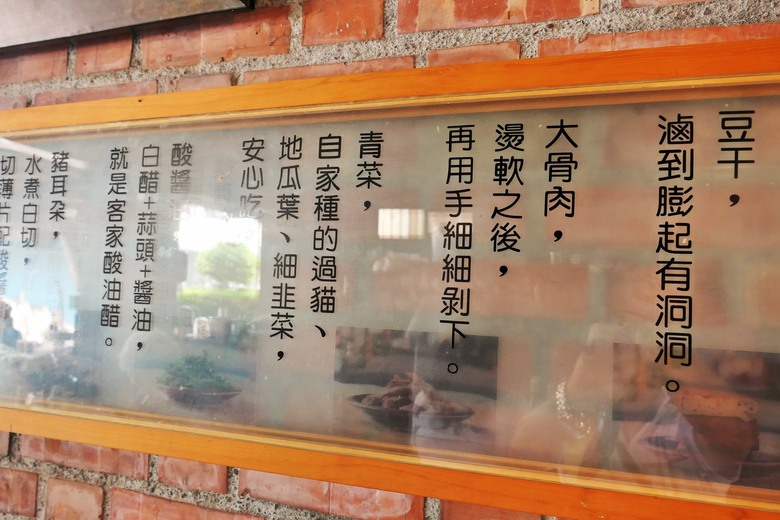 豆干，
滷到膨起有洞洞。
大骨肉，
燙軟之後，
再用手細細剝下。
青菜，
自家種的過貓、
地瓜葉、細韭菜，
安心吃
酸醬油
白醋+蒜頭+醬油，
就是客家酸油醋。
豬耳朵，
水煮白切，
切薄片配酸醬